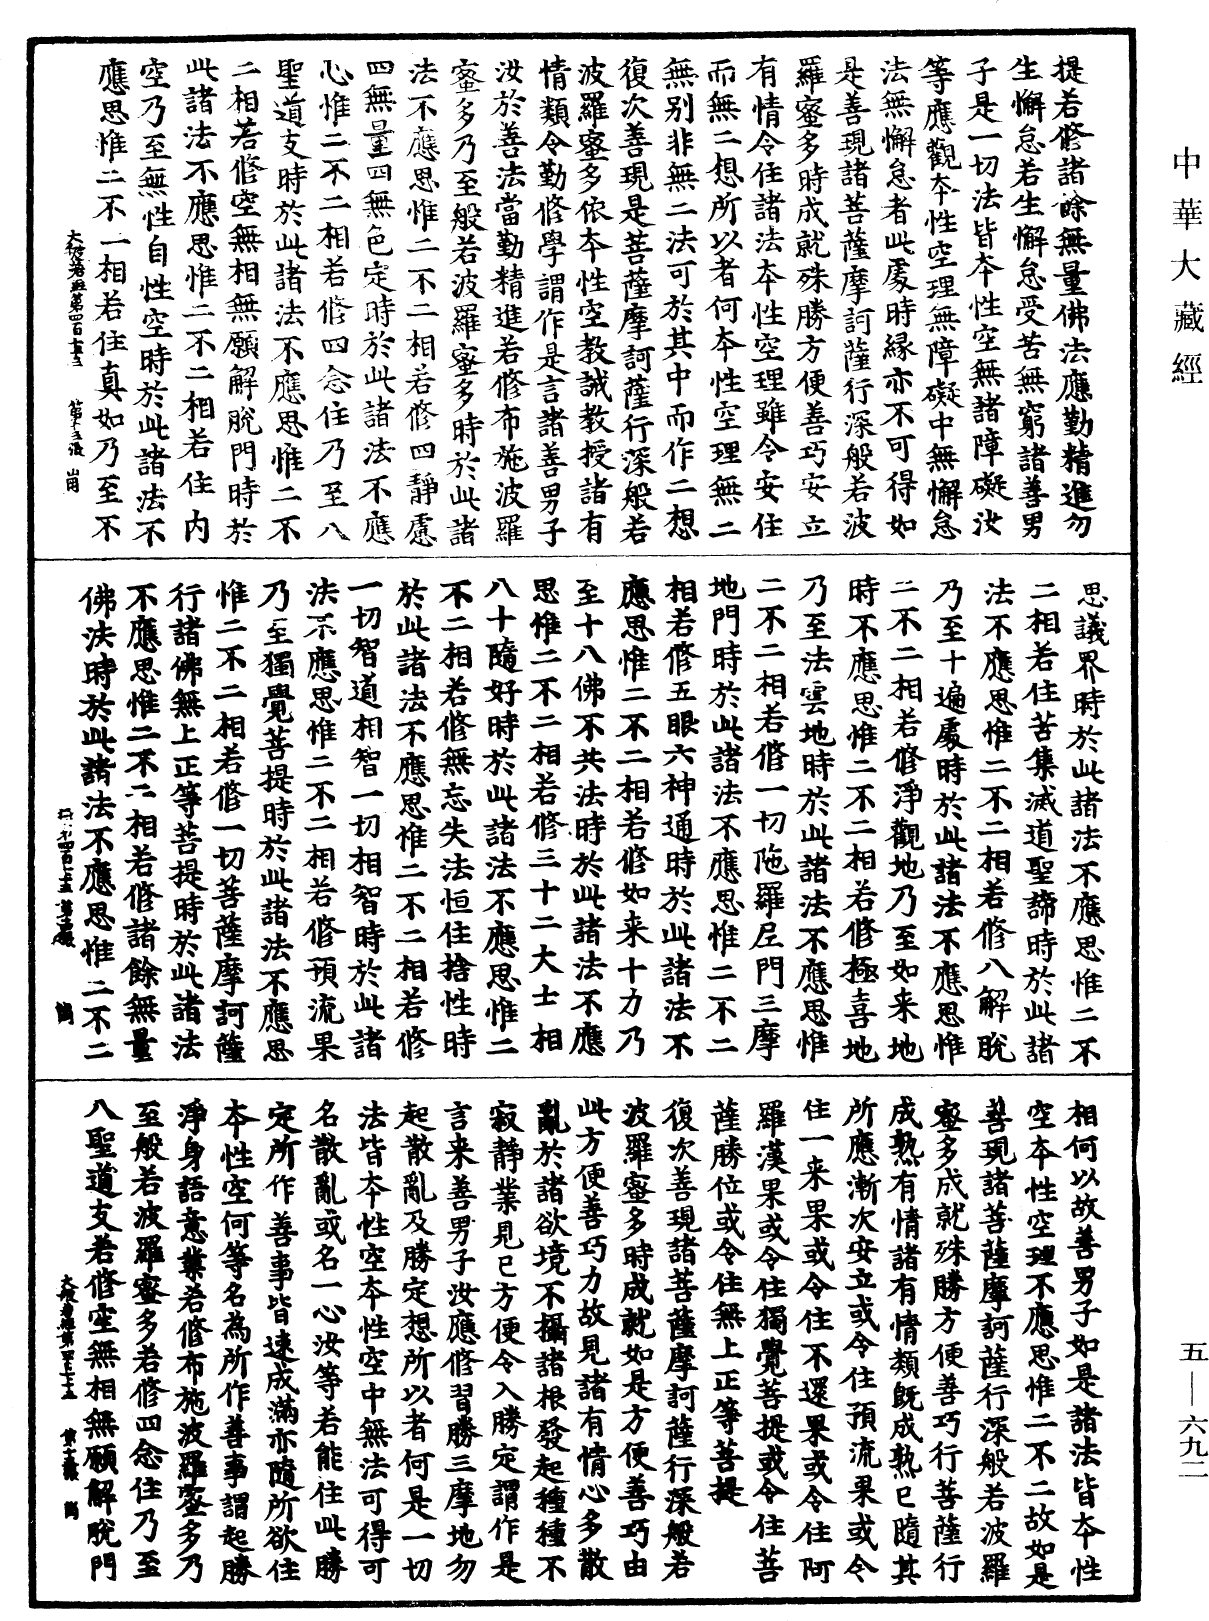 中華大藏經
提若修諸餘無量佛法應勤精進勿
生懈怠若生懈怠受苦無窮諸善男
子是一切法皆本性空無諸障礙汝
等應觀本性空理無障礙中無懈怠
法無懈怠者此處時緣亦不可得如
是善現諸菩薩摩訶薩行深般若波
羅蜜多時成就殊勝方便善巧安立
有情令住諸法本性空理雖令安住
而無二想所以者何本性空理無二
無別非無二法可於其中而作二想
復次善現是菩薩摩訶薩行深般若
波羅蜜多依本性空教誡教授諸有
情類令勤修學謂作是言諸善男子
汝於善法當勤精進若修布施波羅
蜜多乃至般若波羅蜜多時於此諸
法不應思惟二不二相若修四靜慮
四無量四無色定時於此諸法不應
心惟二不二相若修四念住乃至八
聖道支時於此諸法不應思惟二不
二相若修空無相無願解脫門時於
此諸法不應思惟二不二相若住內
空乃至無性自性空時於此諸法不
應思惟二不一相若住真如乃至不
思議界時於此諸法不應思惟二不
二相若住苦集滅道聖諦時於此諸
法不應思惟二不二相若修八解脫
乃至十遍處時於此諸法不應思惟
二不二相若修淨觀地乃至如来地
時不應思惟二不二相若修極喜地
乃至法雲地時於此諸法不應思惟
二不二相若修一切陁羅尼門三摩
地門時於此諸法不應思惟二不二
相若修五眼六神通時於此諸法不
應思惟二不二相若修如来十力乃
至十八佛不共法時於此諸法不應
思惟二不二相若修三十二大士相
八十隨好時於此諸法不應思惟二
不二相若修無忘失法恒住捨性時
於此諸法不應思惟二不二相若修
一切智道相智一切相智時於此諸
法不應思惟二不二相若修預流果
乃至獨覺菩提時於此諸法不應思
惟二不二相若修一切菩薩摩訶薩
行諸佛無上正等菩提時於此諸法
不應思惟二不二相若修諸餘無量
佛法時於此諸法不應思惟二不二
相何以故善男子如是諸法皆本性
空本性空理不應思惟二不二故如是
善現諸菩薩摩訶薩行深般若波羅
蜜多成就殊勝方便善巧行菩薩行
成熟有情諸有情類既成熟已隨其
所應漸次安立或令住預流果或令
住一来果或令住不還果或令住阿
羅漢果或令住獨覺菩提或令住菩
薩勝位或令住無上正等菩提
復次善現諸菩薩摩訶薩行深般若
波羅蜜多時成就如是方便善巧由
此方便善巧力故見諸有情心多散
亂於諸欲境不攝諸根發起種種不
寂靜業見已方便令入勝定謂作是
言来善男子汝應修習勝三摩地勿
起散亂及勝定想所以者何是一切
法皆本性空本性空中無法可得可
名散亂或名一心汝等若能住此勝
定所作善事皆速成滿亦隨所欲住
本性空何等名為所作善事謂起勝
淨身語意業若修布施波羅蜜多乃
至般若波羅蜜多若修四念住乃至
八聖道支若修空無相無願解脫門
五—六九二